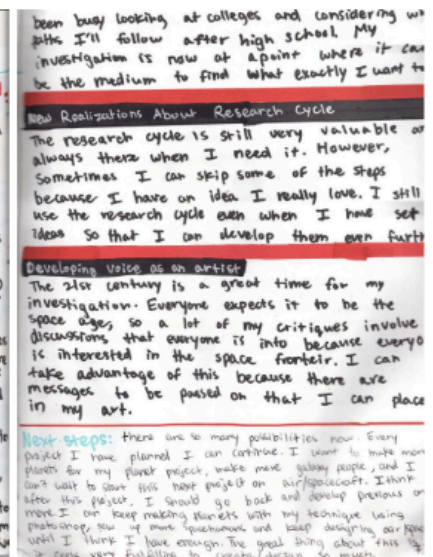 been busy looking at colleges and considering wh
paths I'll follow after high school. My
investigation is now at a point where it can
be the medium to find what exactly I want to
New Realizations About Research Cycle
The research cycle is still very valuable an
always there when I need it. However,
Sometimes I can skip some of the steps
because I have an idea I really love. I still
use the research cycle even when I have set
ideas so that I can develop them even furth
Developing voice as an artist
The 21st century is a great time for my
investigation. Everyone expects it to be the
space age, so a lot of my critiques involve
discussions that everyone is into because everyo
is interested in the space fronteir. I can
take advantage of this because there are
messages to be passed on that I can place
in my art.
Next steps: there are so many possibilities now. Every
project I have planned I can continue. I want to make more
planets for my planet project, make more galaxy people, and I
can't wait to start this next project on air/spacecraft. I think
after this project, I should go back and develop previous on
more. I can keep making planets with my technique using
photoshop, sew up more and keep designing
until I think I have enough. The great thing about this is
very fulfilling to create/design so much